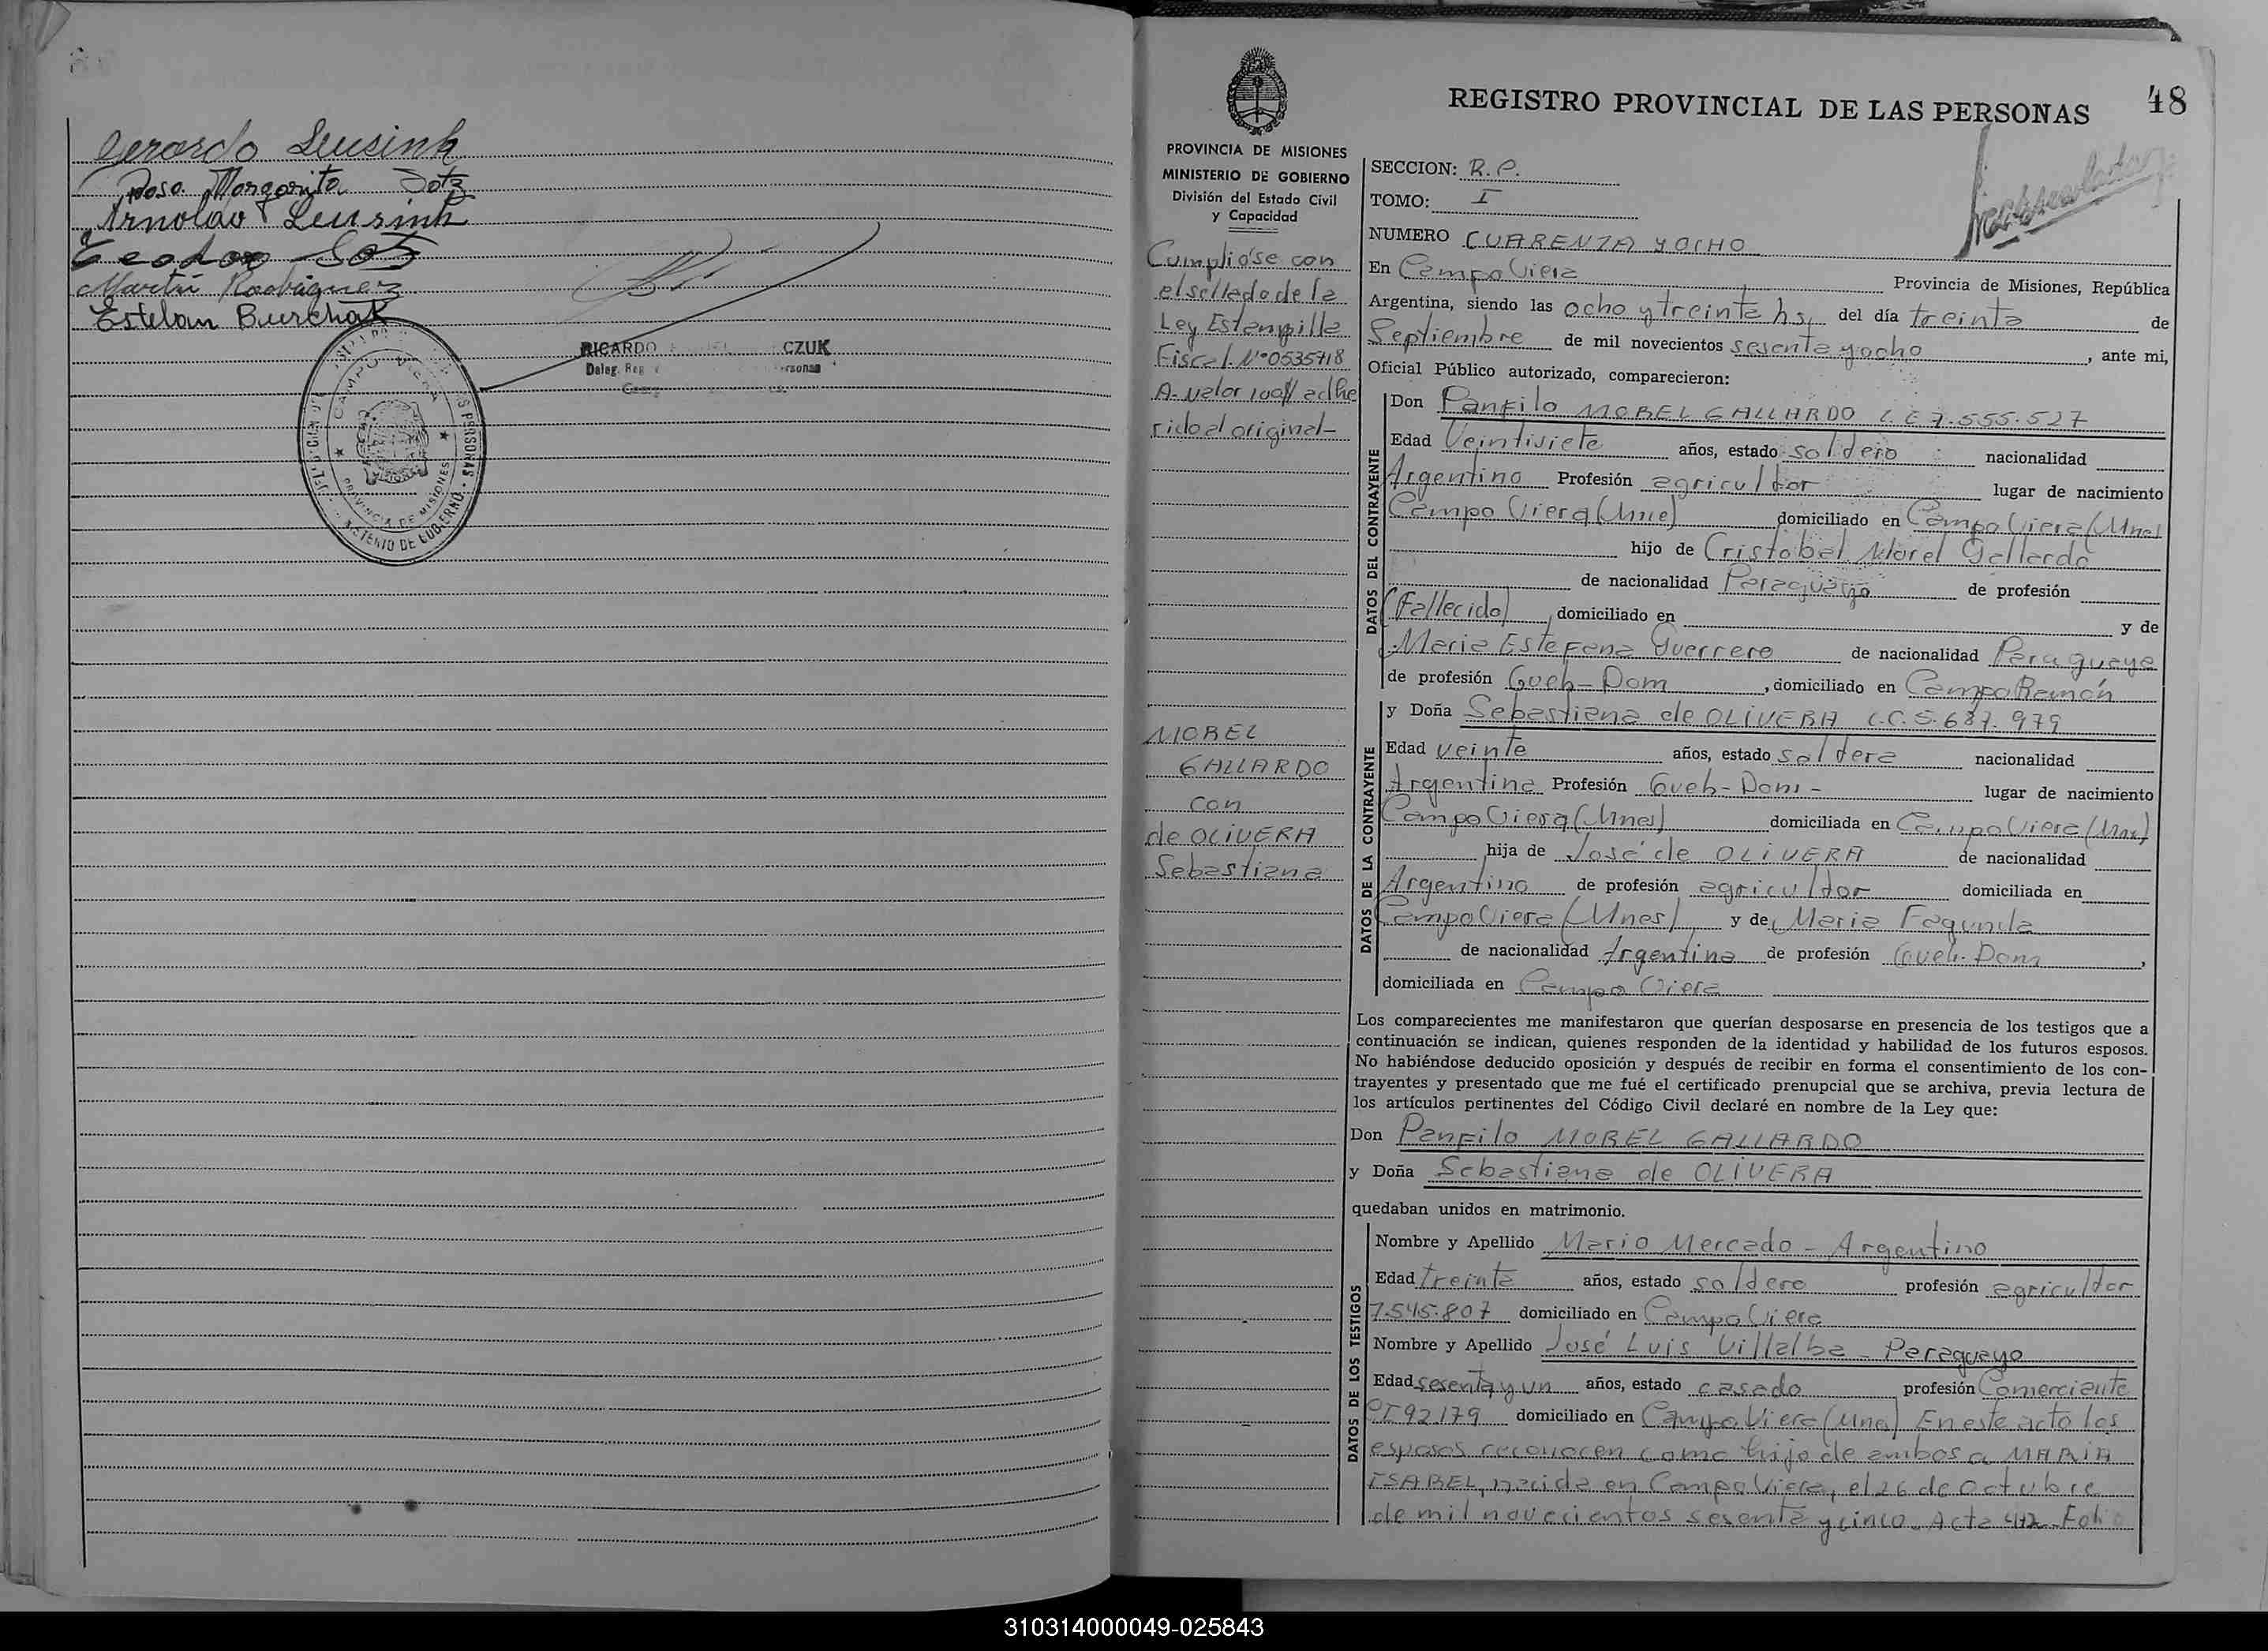 Gerardo Leusink
Rosa Margarita Sotz
Arnoldo Leusink
Teodoro
Martín Rodriguez
Esteban Burchak
RICARDO CZUK
Deleg. Reg.
CAMPO VIERA
PROVINCIA DE MISIONES
PERSONAS
MINISTERIO DE GOBIERNO
REGISTRO PROVINCIAL DE LAS PERSONAS 48
PROVINCIA DE MISIONES
MINISTERIO DE GOBIERNO
División del Estado Civil
y Capacidad
Cumplióse con
el sellado de la
Ley Estampilla
Fiscal Nº 0535718
A-valor 100// adhe
rido al original-
MOREL
GALLARDO
con
de OLIVERA
Sebastiana
SECCION: R.P.
TOMO: I
NUMERO CUARENTA Y OCHO
En Campo Viera Provincia de Misiones, República
Argentina, siendo las ocho y treinta hs, del día treinta de
Septiembre de mil novecientos sesenta y ocho, ante mi,
Oficial Público autorizado, comparecieron:
DATOS DEL CONTRAYENTE
Don Panfilo MOREL GALLARDO L.E 7.555.527
Edad Veintisiete años, estado soldero nacionalidad
Argentino Profesión agricultor lugar de nacimiento
Campo Viera domiciliado en Campo Viera (Mnes)
hijo de Cristobal Morel Gallardo
de nacionalidad Paraguayo de profesión
(Fallecido), domiciliado en y de
Maria Estefana Guerrero de nacionalidad Paraguaya
de profesión Gueh-Dom, domiciliado en Campo Ramón
DATOS DE LA CONTRAYENTE
y Doña Sebastiana de OLIVERA L.C. 5.687.979
Edad veinte años, estado soldera nacionalidad
Argentina Profesión Gueh-Dom- lugar de nacimiento
Campo Viera (Mnes) domiciliada en Campo Viera (Mnes)
hija de José de OLIVERA de nacionalidad
Argentino de profesión agricultor domiciliada en
Campo Viera (Mnes) y de Maria Fagunda
de nacionalidad Argentina de profesión Gueh-Dom,
domiciliada en Campo Viera
Los comparecientes me manifestaron que querían desposarse en presencia de los testigos que a
continuación se indican, quienes responden de la identidad y habilidad de los futuros esposos.
No habiéndose deducido oposición y después de recibir en forma el consentimiento de los con-
trayentes y presentado que me fué el certificado prenupcial que se archiva, previa lectura de
los artículos pertinentes del Código Civil declaré en nombre de la Ley que:
Don Panfilo MOREL GALLARDO
y Doña Sebastiana de OLIVERA
quedaban unidos en matrimonio.
DATOS DE LOS TESTIGOS
Nombre y Apellido Mario Mercado - Argentino
Edad treinta años, estado soldero profesión agricultor
7.545.807 domiciliado en Campo Viera
Nombre y Apellido José Luis Villalba - Paraguayo
Edad sesenta y un años, estado casado profesión Comerciante
CI 92.179 domiciliado en Campo Viera (Mnes) En este acto los
esposos reconocen como hijo de ambos a MARIA
ISABEL, nacida en Campo Viera, el 26 de Octubre
de mil novecientos sesenta y cinco. Acta 412 Folio
310314000049-025843